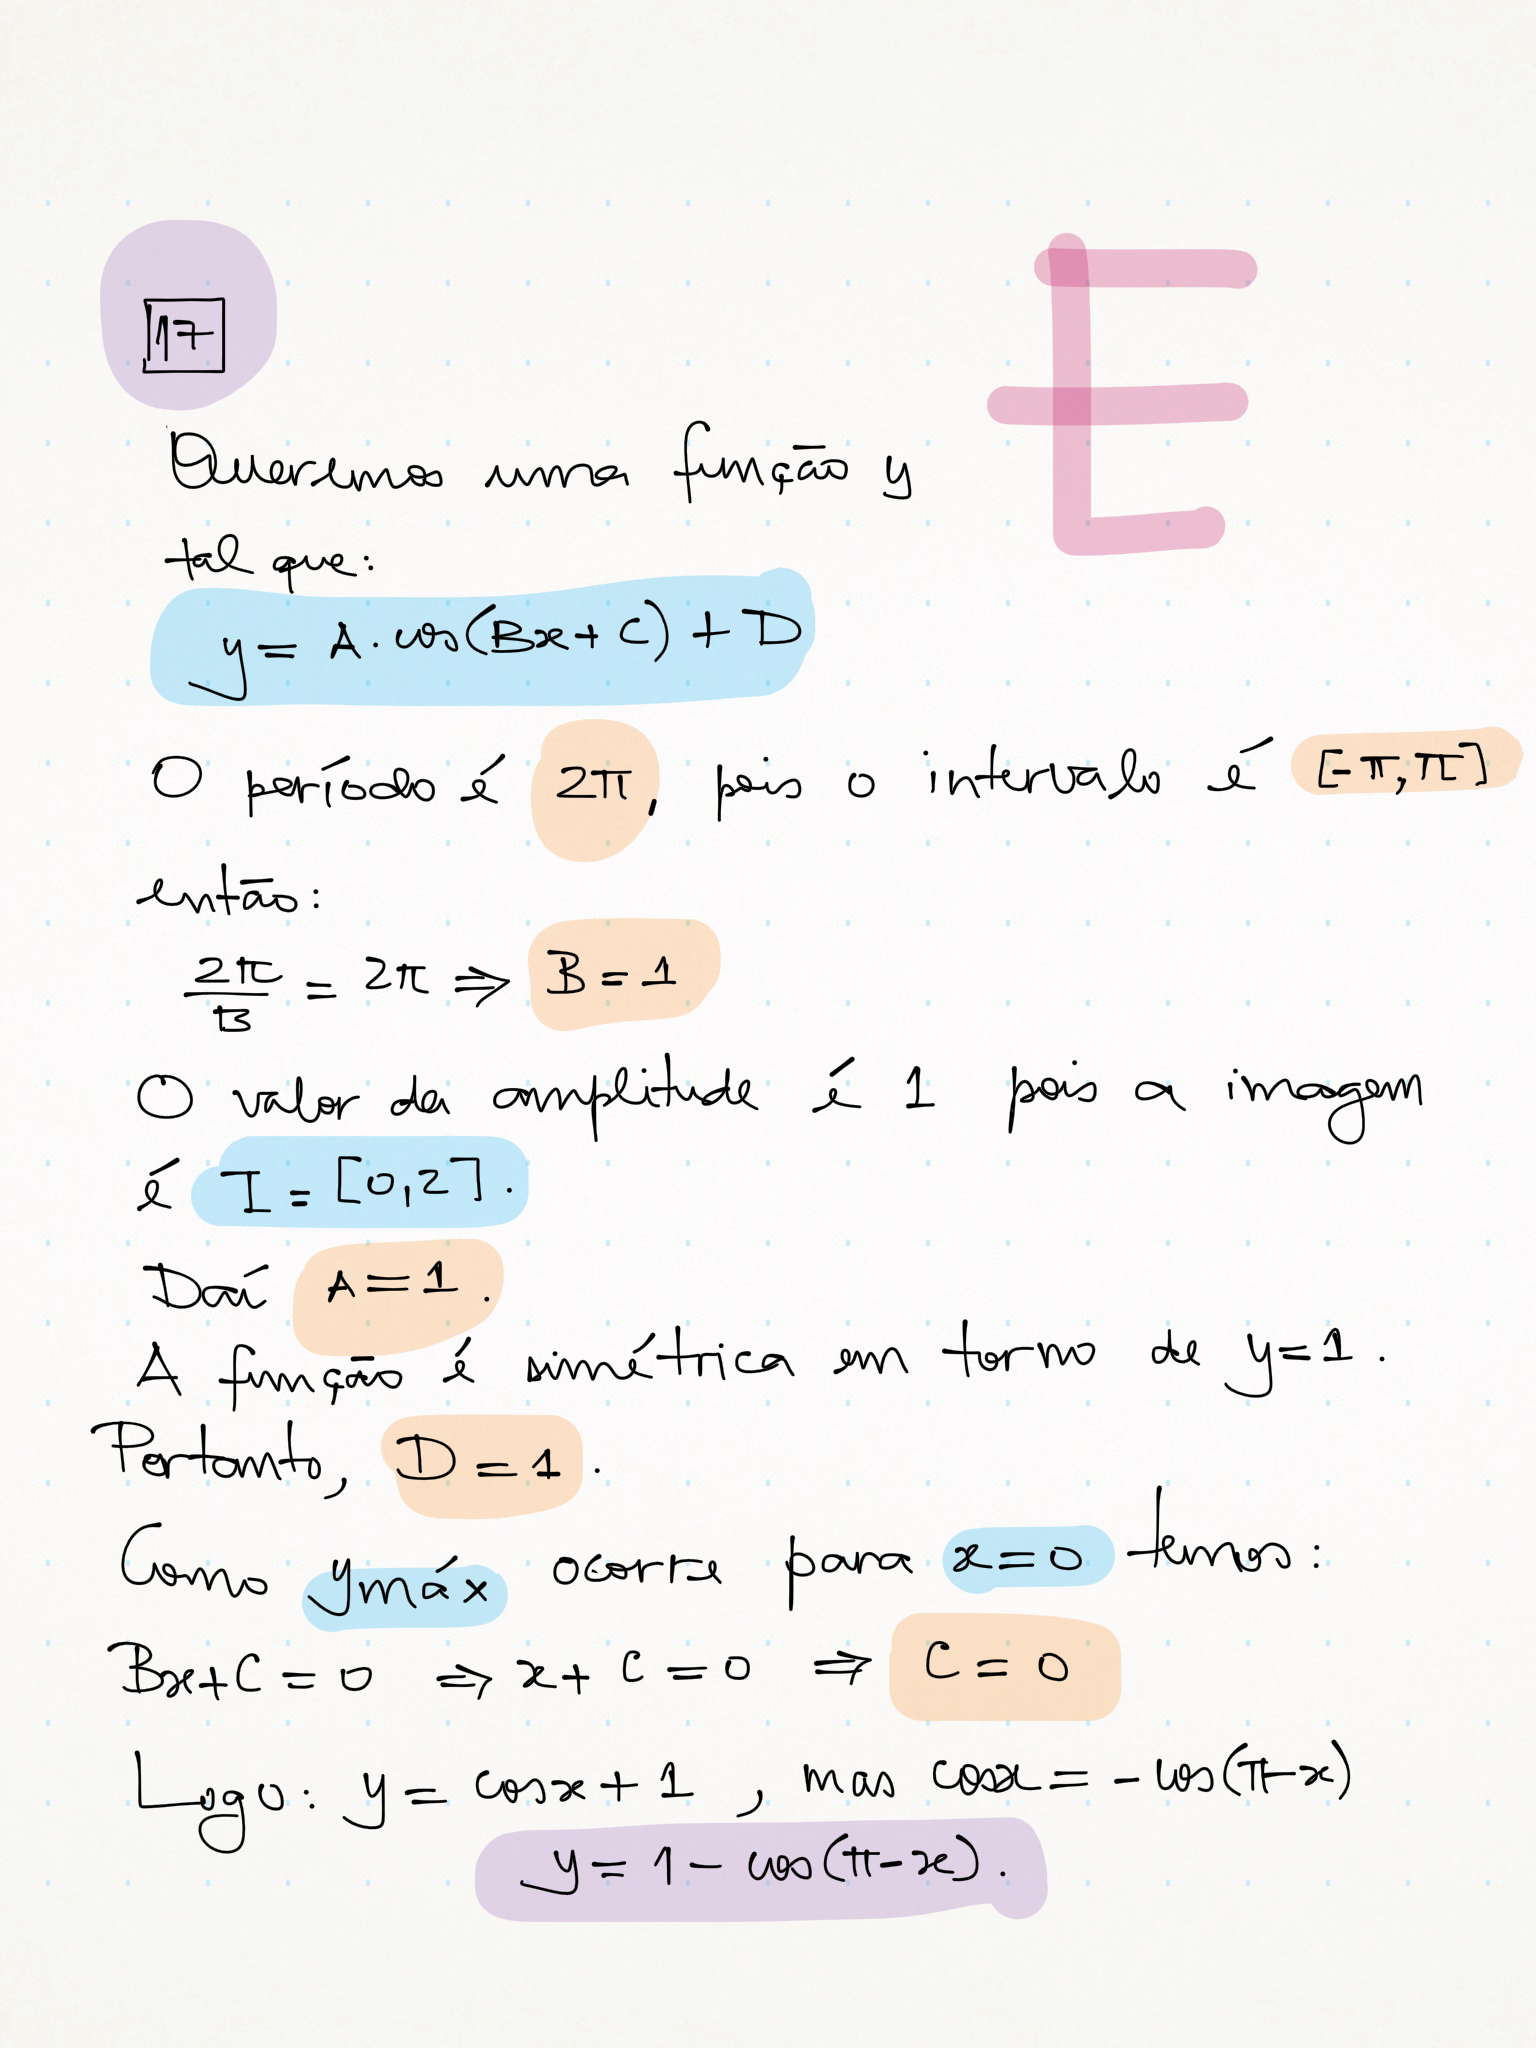 17
E
Queremos uma função y
tal que:
y = A. cos(Bx + C) + D
O período é 2π, pois o intervalo é [-π, π]
então:
2π/B = 2π ⇒ B = 1
O valor da amplitude é 1 pois a imagem
é I = [0,2].
Daí A = 1.
A função é simétrica em torno de y = 1.
Portanto, D = 1.
Como ymáx ocorre para x = 0 temos:
Bx + C = 0 ⇒ x + C = 0 ⇒ C = 0
Logo: y = cosx + 1, mas cosx = - cos(π - x)
y = 1 - cos(π - x).